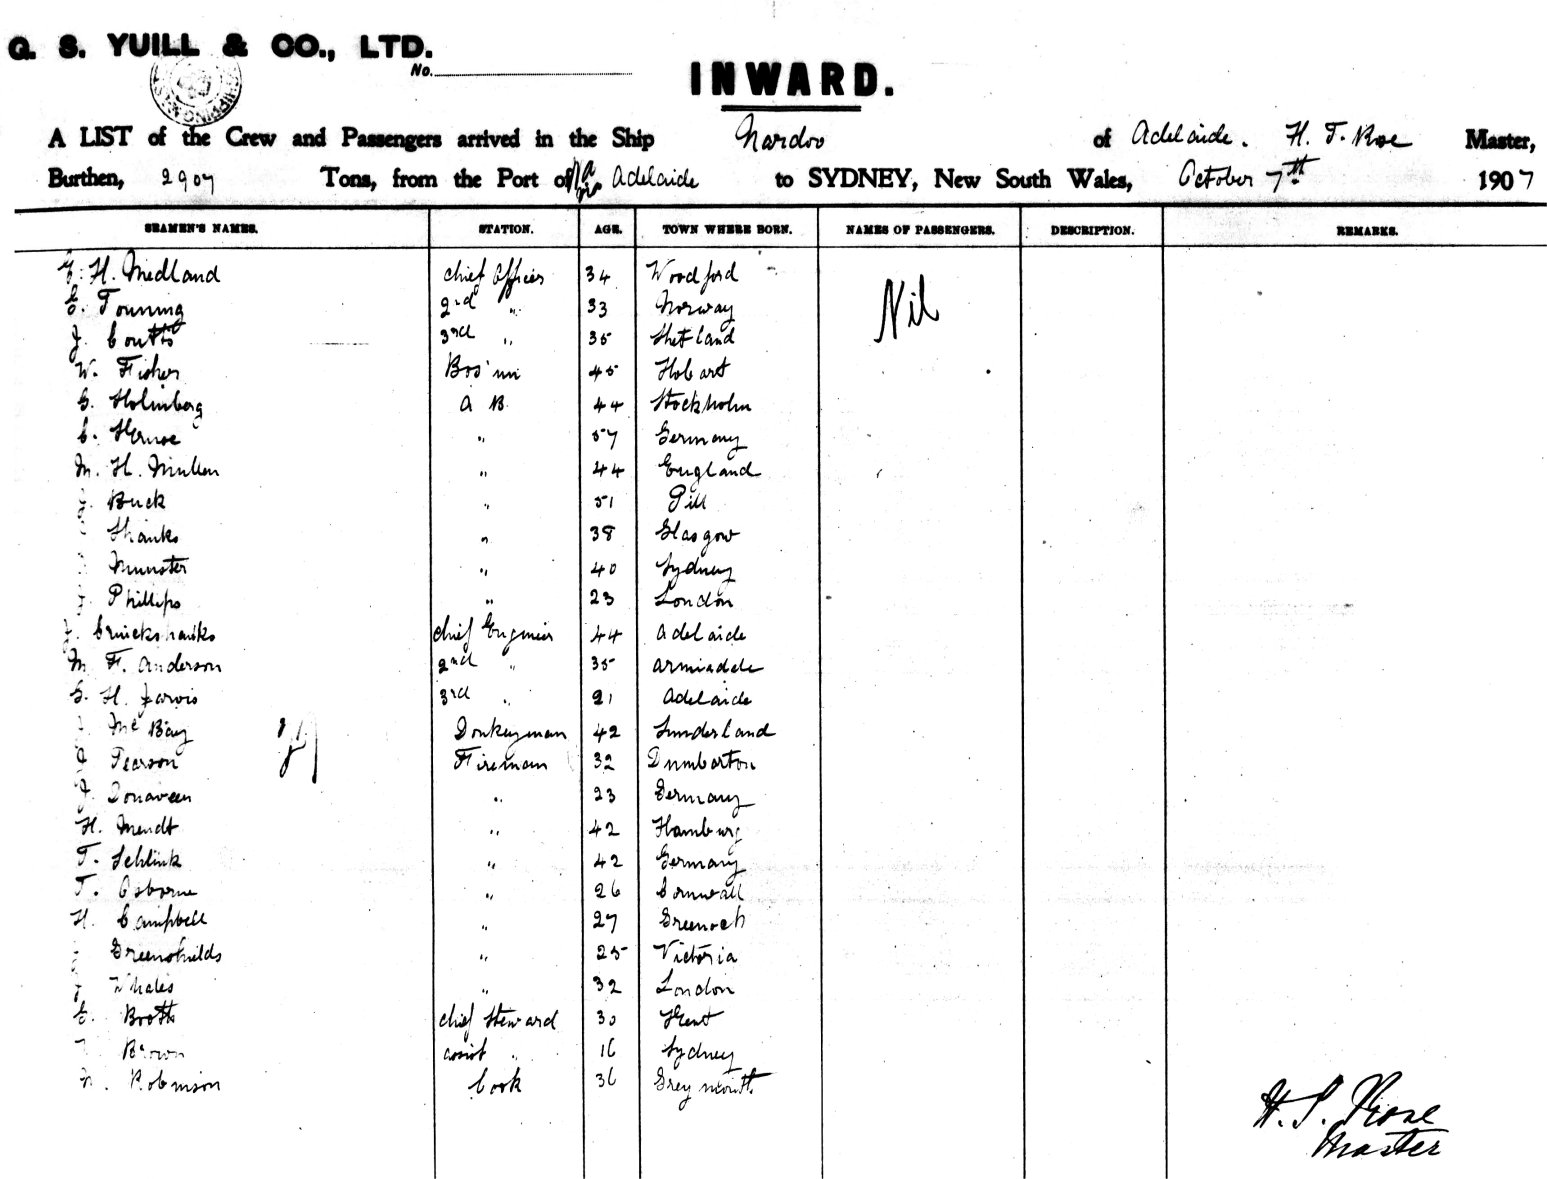 G. S. YUILL & CO., LTD.
No.
INWARD.
A LIST of the Crew and Passengers arrived in the Ship Nardoo of Adelaide. H. T. Rose Master,
Burthen, 2907 Tons, from the Port of Adelaide to SYDNEY, New South Wales, October 7th 1907
SEAMEN'S NAMES. STATION. AGE. TOWN WHERE BORN. NAMES OF PASSENGERS. DESCRIPTION. REMARKS.
H. Medland chief Officer 34 Woodford Nil
Tonning 2nd " 33 Norway
J. Coutts 3rd " 35 Shetland
W. Fisher Bos'un 45 Hobart
G. Holmberg A B 44 Stockholm
C. " 57 Germany
M. H. Mullen " 44 England
J. Buck " 51 Pill
Shanks " 38 Glasgow
Munster " 40 Sydney
J. Phillips " 23 London
J. Cruickshanks chief Engineer 44 Adelaide
M. F. Anderson 2nd " 35 Armiadale
G. H. Jarvis 3rd " 21 Adelaide
McBay Donkeyman 42 Sunderland
J. Pearson Fireman 32 Dumbarton
J. Donaveen " 23 Germany
H. Mendt " 42 Hamburg
T. Schlink " 42 Germany
T. Osborne " 26 Cornwall
H. Campbell " 27 Greenock
Greenshields " 25 Victoria
J. Whales " 32 London
Booth chief Steward 30 Kent
Brown assist " 16 Sydney
Robinson Cook 36 Greymouth
H. T. Rose
Master